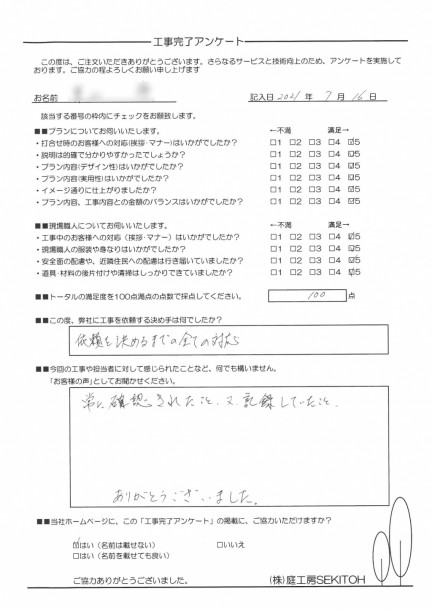 工事完了アンケート
この度は、ご注文いただきありがとうございます。さらなるサービスと技術向上のため、アンケートを実施して
おります。ご協力の程よろしくお願い申し上げます
お名前
記入日 2021 年 7 月 16 日
該当する番号の枠内にチェックをお願致します。
■■プランについてお伺いいたします。 ←不満 満足→
・打合せ時のお客様への対応(挨拶・マナー)はいかがでしたか? □1 □2 □3 □4 ☑5
・説明は的確で分かりやすかったでしょうか? □1 □2 □3 □4 ☑5
・プラン内容(デザイン性)はいかがでしたか? □1 □2 □3 □4 ☑5
・プラン内容(実用性)はいかがでしたか? □1 □2 □3 □4 ☑5
・イメージ通りに仕上がりましたか? □1 □2 □3 □4 ☑5
・プラン内容、工事内容との金額のバランスはいかがでしたか? □1 □2 □3 □4 ☑5
■■現場職人についてお伺いいたします。 ←不満 満足→
・工事中のお客様への対応(挨拶・マナー)はいかがでしたか? □1 □2 □3 □4 ☑5
・現場職人の服装や身なりはいかがでしたか? □1 □2 □3 □4 ☑5
・安全面の配慮や、近隣住民への配慮は行き届いていましたか? □1 □2 □3 □4 ☑5
・道具・材料の後片付けや清掃はしっかりできていましたか? □1 □2 □3 □4 ☑5
■■トータルの満足度を100点満点の点数で採点してください。 100 点
■■この度、弊社に工事を依頼する決め手は何でしたか?
依頼を決めるまでの全ての対応
■■今回の工事や担当者に対して感じられたことなど、何でも構いません。
「お客様の声」としてお聞かせください。
常に確認されたこと、又記録していたこと、
ありがとうございました。
■■当社ホームページに、この「工事完了アンケート」の掲載に、ご協力いただけますか?
☑はい(名前は載せない) □いいえ
□はい(名前を載せても良い)
ご協力ありがとうございました。
(株)庭工房SEKITOH